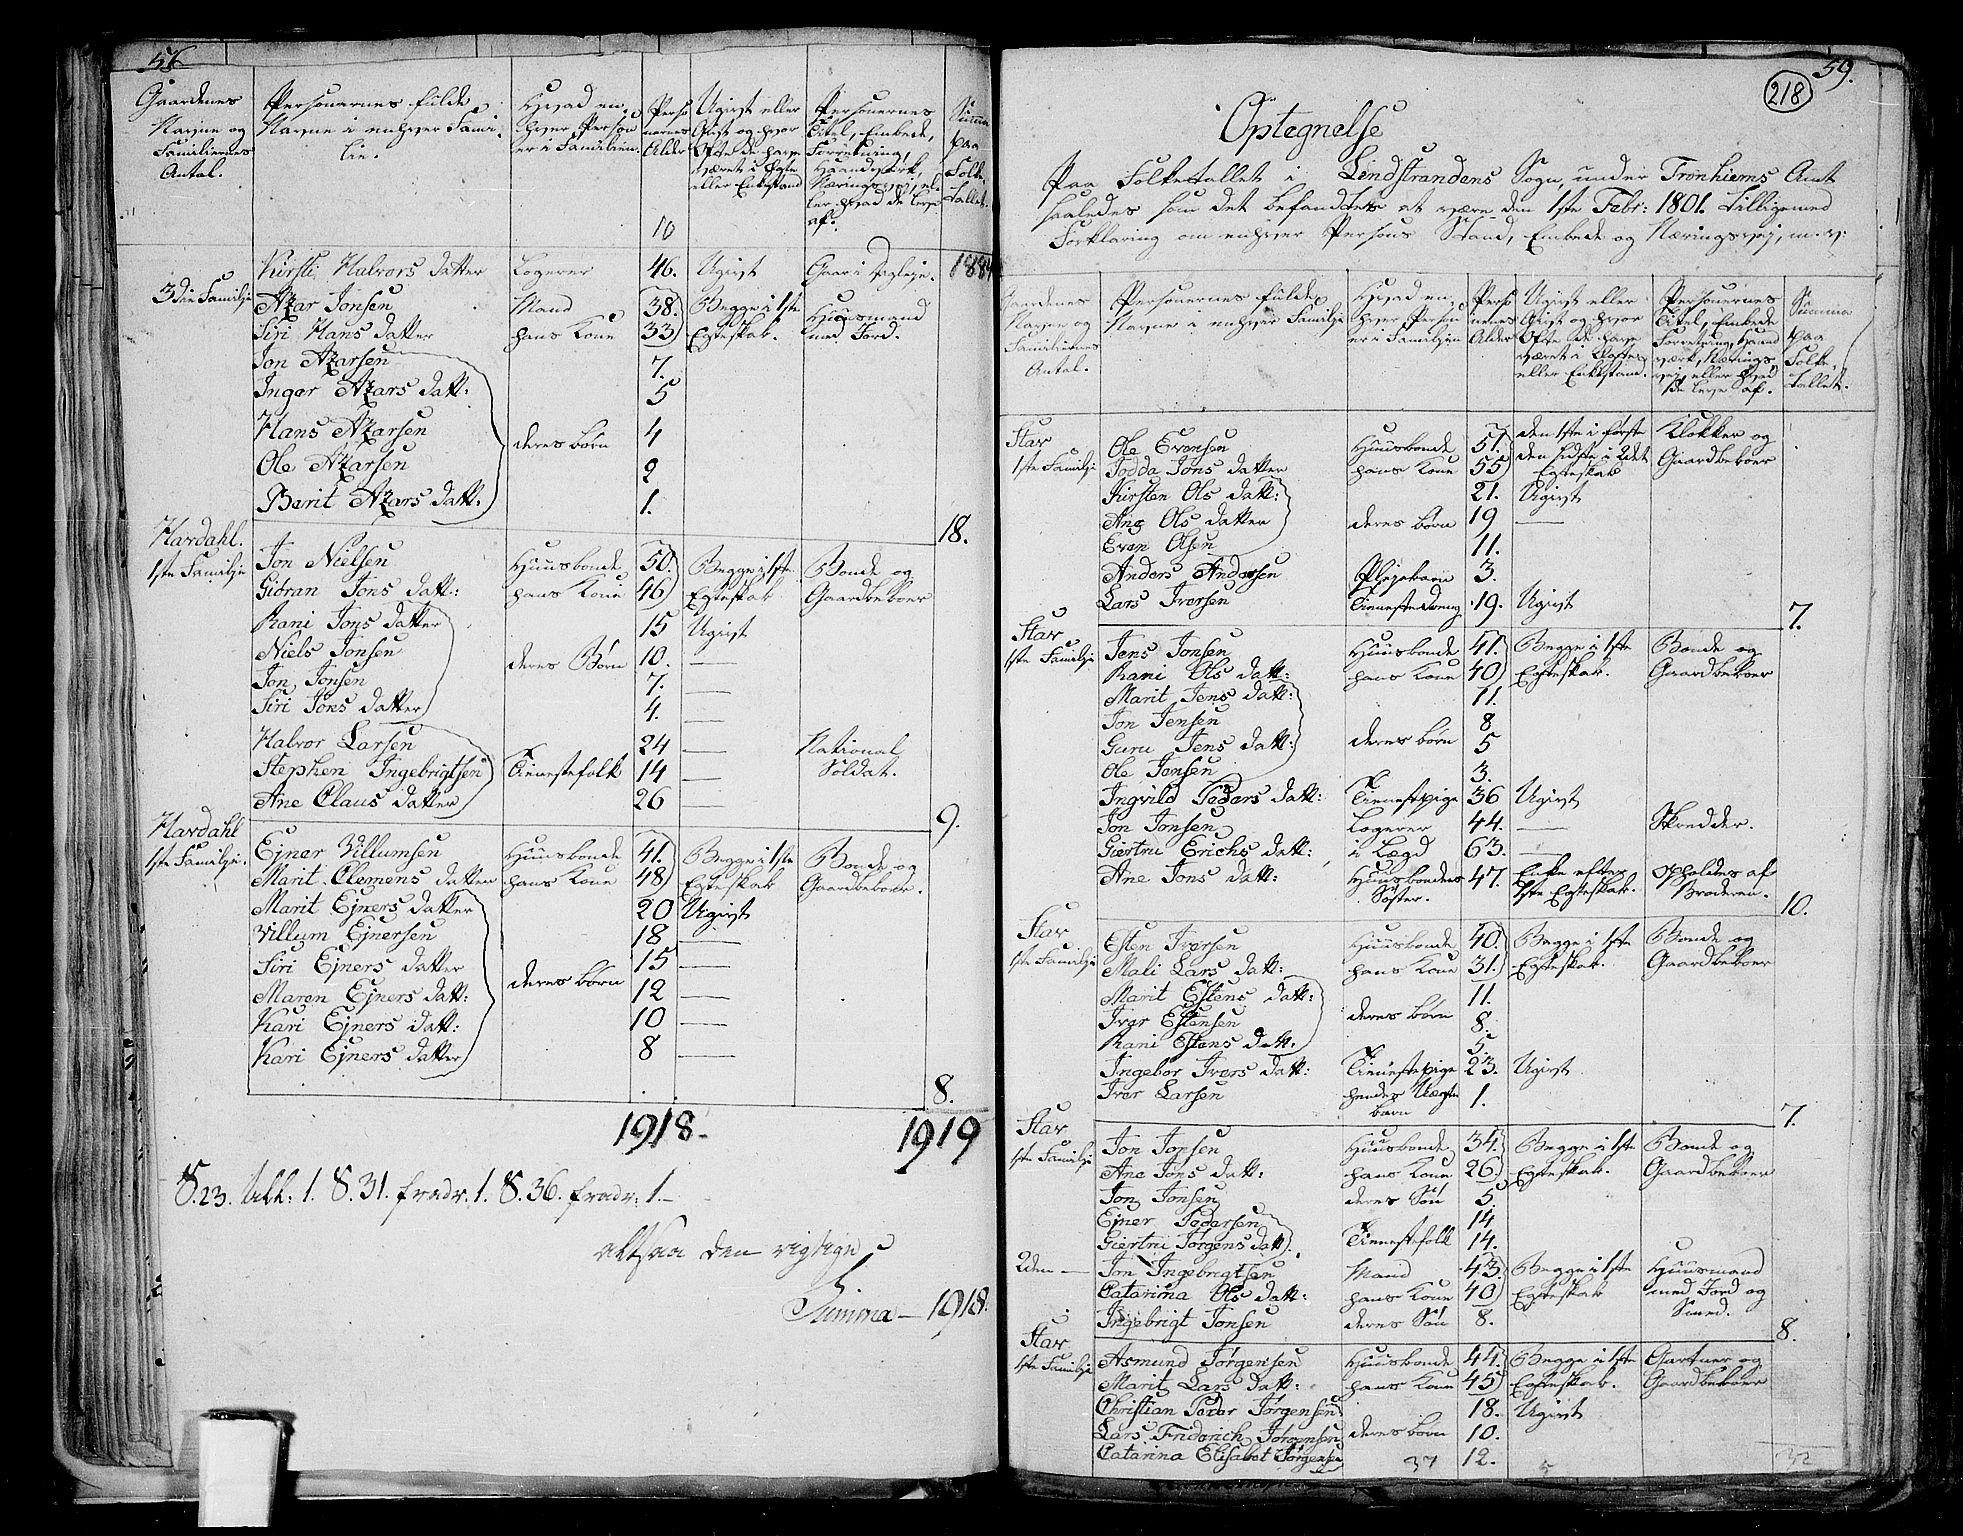 56
Gaardenes Navne og Familiernes Antal.
Personernes fulde Navne i enhver Familie.
Hvad enhver Person er i Familien
Personernes Alder
Ugivt eller Givt og hvor Ofte de have været i Egte- eller Enkestand
Personernes Titel, Embede, Forretning, Haandverk, Næringsvej, eller hvad de leve af.
Summa paa Folketallet.
10
Kirsti Halvors datter Logerer 46. Ugivt 188
3die Familje
Azar Jonsen Mand 38. Begge i 1ste Huusmand
Siri Hans datter hans Kone 33) Egteskab. med Jord.
Jon Azarsen 7.
Inger Azars datt: 5
Hans Azarsen deres børn 4
Ole Azarsen 2
Berit Azars datt: 1.
18.
Hardahl.
1ste Familje
Jon Nielsen Huusbonde 50. Begge i 1ste Bonde og
Gidran Jons datt: hans Kone 46) Egteskab Gaardbeboer
Rani Jons datter 15 Ugivt
Niels Jonsen deres Børn 10. —
Jon Jonsen 7. —
Siri Jons datter 4. —
Halvor Larsen 24 — National Soldat.
Stephen Ingebrigtsen Tienestefolk 14 —
Ane Claus datter 26 —
9.
Hardahl
1ste Familje.
Ejner Villumsen Huusbonde 41. Begge i 1ste Bonde og
Marit Clemens datter hans Kone 48) Egteskab Gaardbeboer.
Marit Ejners datter 20 Ugivt
Villum Ejnersen 18 —
Siri Ejners datter 15 —
Maren Ejners datt: deres børn 12 —
Kari Ejners datt: 10 —
Kari Ejners datter 8 —
8.
1918. 1919
S. 23. 1. S. 31. fradr. 1. S. 36. fradr: 1.—
altsaa den rigtige
Summa — 1918.
59.
218
Optegnelse
Paa Folketallet i Lindstrandens Sogn, under Tronhiems Amt
saaledes som det befandtes at være den 1ste Febr: 1801. Tilligemed
Forklaring om enhver Persons Stand, Embede og Næringsvej, m. v:
Gaardenes Navne og Familiernes Antal.
Personernes fulde Navne i enhver Familje
Hvad enhver Person er i Familjen
Personernes Alder
Ugivt eller Givt og hvor Ofte de have været i Egte- eller Enkestand.
Personernes Titel, Embede Forretning, Haandverk, Næringsvej, eller hvad de leve af.
Summa paa Folketallet.
Stav
1ste Familje
Ole Evensen Huusbonde 51. den 1ste i første Klokker og
Todda Jons datter hans Kone 55) den sidste i 2det Egteskab Gaardbeboer
Kirsten Ols datt: 21. Ugivt
Ane Ols datter deres børn 19 —
Even Olsen 11.
Anders Andersen Plejebarn 3.
Lars Iversen Tienestedreng 19. Ugivt
7.
Stav
1ste Familje
Jens Jonsen Huusbonde 41. Begge i 1ste Bonde og
Rani Ols datt: hans Kone 40) Egteskab. Gaardbeboer
Marit Jens datt: 11.
Jon Jensen 8
Guru Jens datt: deres børn 5
Ole Jensen 3.
Ingvild Peders datt: Tienestepige 36 Ugivt
Jon Jonsen Logerer 44. — Skredder.
Giertru Erichs datt: i Lægd 63. —
Ane Jons datt: Huusbondens Søster. 47. Enke efter 1ste Egteskab. opholdes af Broderen.
10.
Stav
1ste Familje
Esten Iversen Huusbonde 40. Begge i 1ste Bonde og
Mali Lars datt: hans Kone 31.) Egteskab. Gaardbeboer
Marit Estens datt: 11.
Iver Estensen deres børn 8.
Rani Estens datt: 5
Ingebor Ivers datt: Tienestepige 23. Ugivt
Iver Larsen hendes Uægte barn 1.
7.
Stav
1ste Familje
Jon Jonsen Huusbonde 34. Begge i 1ste Bonde og
Ane Jons datt: hans Kone 26.) Egteskab. Gaardbeboer
Jon Jonsen deres Søn 5.
Ejner Pedersen 14
Giertru Jørgens datt. Tienestefolk 14.
2den —
Jon Ingebrigtsen Mand 43. Begge i 1ste Huusmand
Catarina Ols datt: hans Kone 40) Egteskab med Jord og
Ingebrigt Jonsen deres Søn 8. Smed.
8.
Stav
1ste Familje
Asmund Jørgensen Huusbonde 44. Begge i 1ste Gartner og
Marit Lars datt: hans Kone 45) Egteskab. Gaardbeboer
Christian Peder Jørgensen 18. Ugivt
Lars Friderich Jørgensen deres børn 10.
Catarina Elisabet Jørgensen 12.
37 5 32